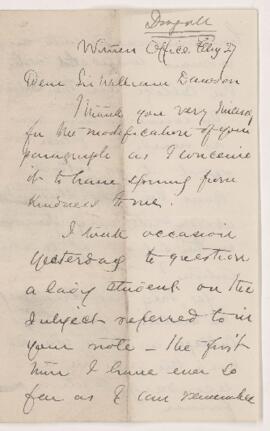 Dear Sir William Dawson
Thank you very
for the modification of your
paragraph as I conceive
it to have sprung from
kindness to me.
I took occasion
yesterday to question
a lady student on the
subject referred to in
your note - the first
time I have ever so
far as I can remember